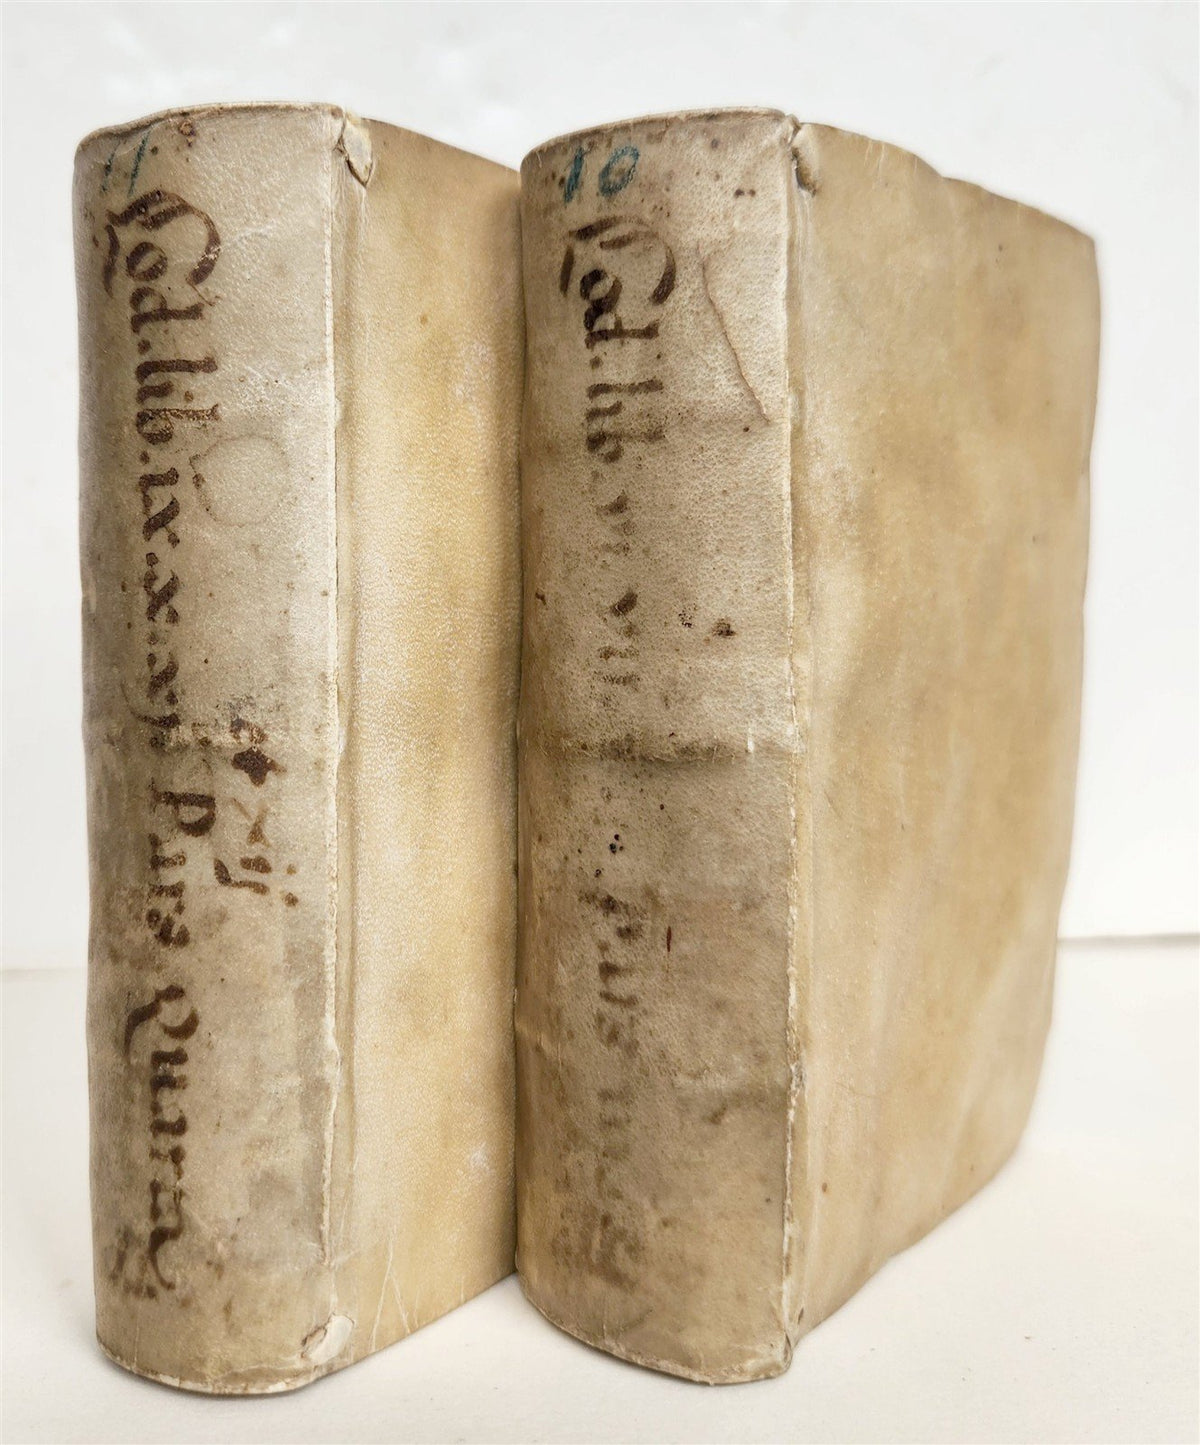 11
Cod. lib. ix. x. xj. Pars Quarta
et xij
10
Cod. lib. vi. vii Pars